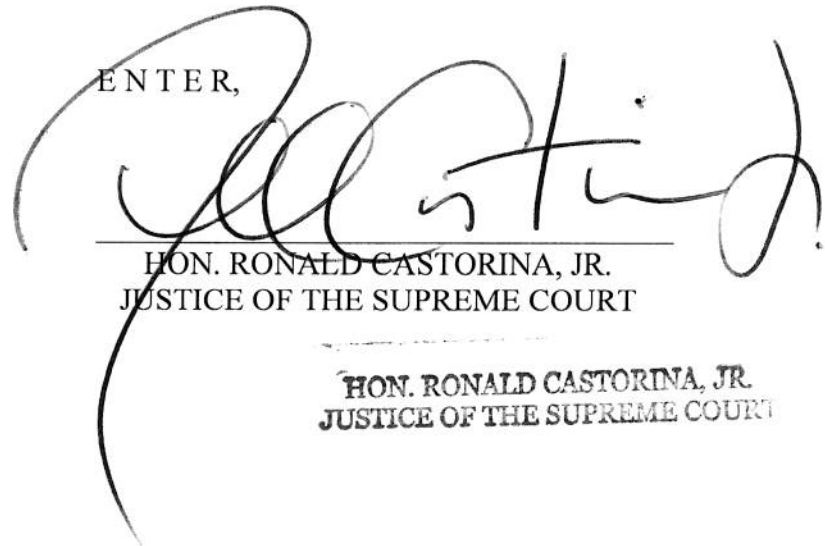 E N T E R,
HON. RONALD CASTORINA, JR.
JUSTICE OF THE SUPREME COURT
HON. RONALD CASTORINA, JR.
JUSTICE OF THE SUPREME COURT